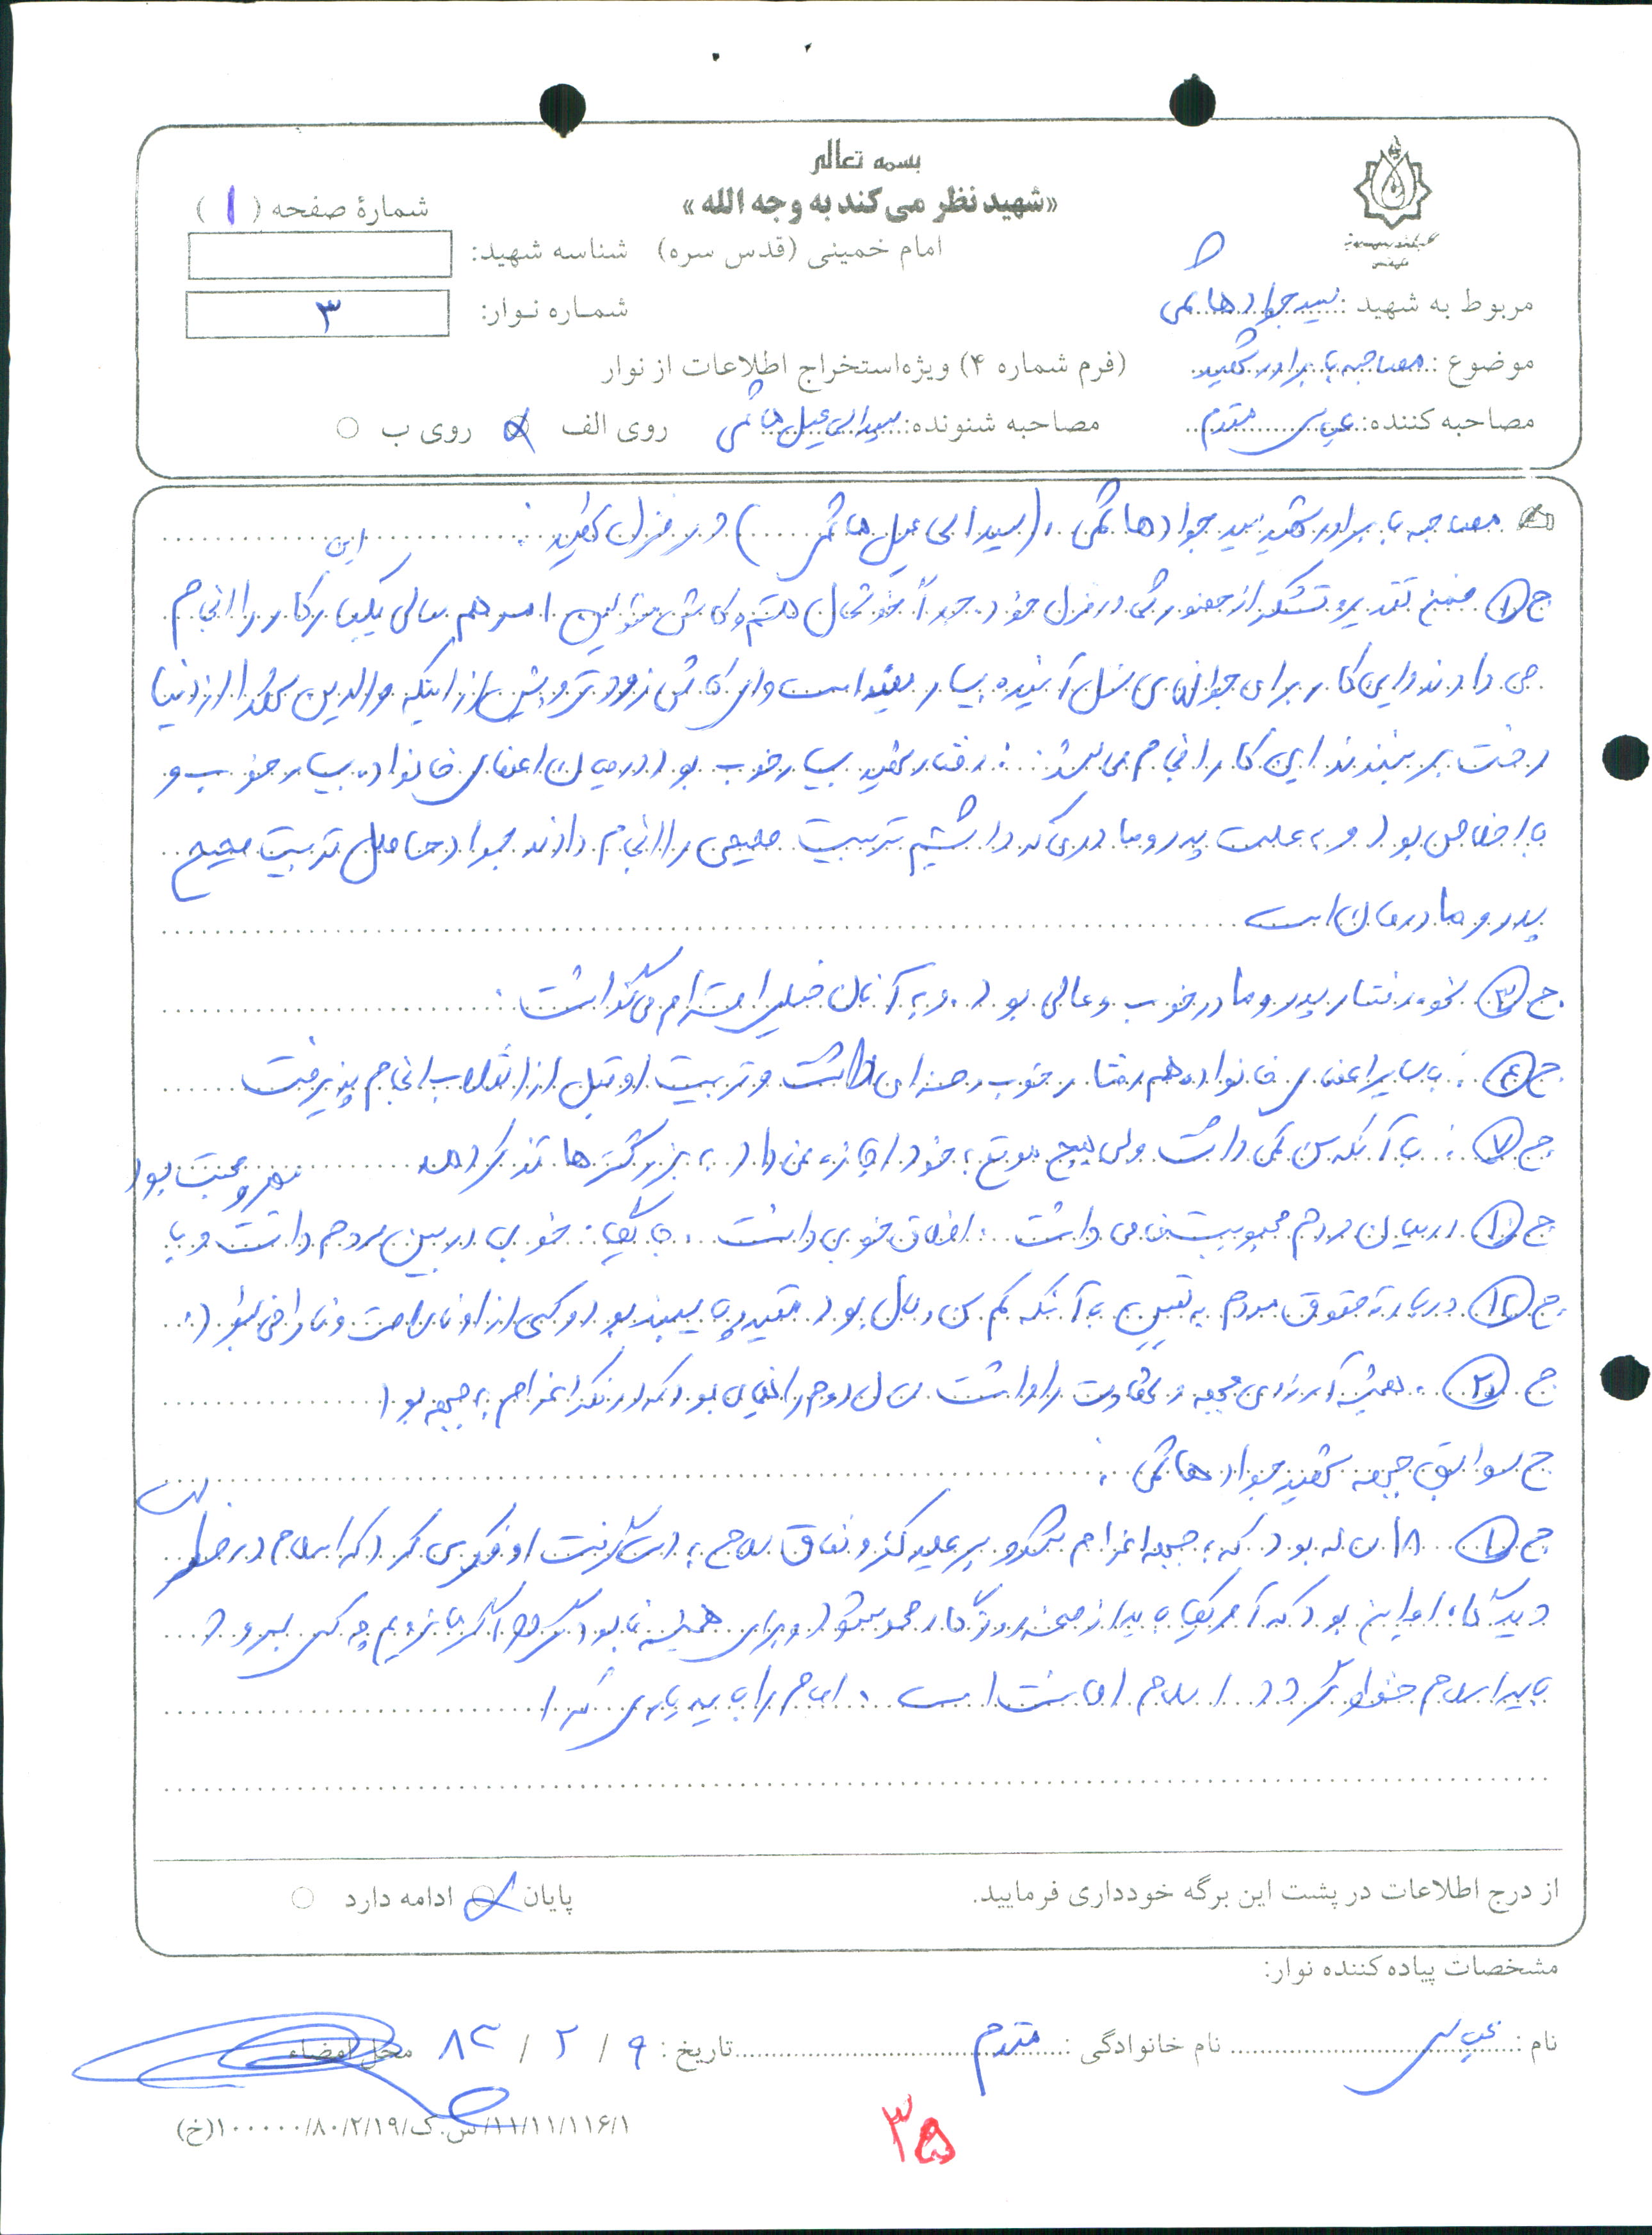 بسمه تعالی
«شهید نظر می‌کند به وجه الله»
شمارهٔ صفحه ( ۱ )
امام خمینی (قدس سره)
شناسه شهید:
مربوط به شهید: سید جواد هاشمی
شماره نوار: ۳
موضوع: مصاحبه با برادر شهید (فرم شماره ۴) ویژه استخراج اطلاعات از نوار
مصاحبه کننده: عباس مقدم مصاحبه شونده: سید اسماعیل هاشمی روی الف روی ب
مصاحبه با برادر شهید سید جواد هاشمی (سید اسماعیل هاشمی) در منزل شهید:
ج ۱ ضمن تقدیر و تشکر از حضور شما در منزل خود جداً خوشحال هستم و کاش مسؤلین امر هم سالی یکبار این کار را انجام
می دادند و این کار برای جوانهای نسل آینده بسیار مفید است و ای کاش زودتر و پیش از اینکه والدین شهدا از دنیا
رخت بر ببندند این کار انجام می شد: رفتار شهید بسیار خوب بود در میان اعضای خانواده بسیار خوب و
با اخلاص بود و به علت پدر و مادری که داشتیم تربیت صحیحی را انجام دادند جواد حاصل تربیت صحیح
پدر و مادرمان است
ج ۳ نحوه رفتار پدر و مادر خوب و عالی بود. و به آنان خیلی احترام می گذاشت.
ج ۴: با سایر اعضای خانواده هم رفتار خوب و حسنه ای داشت و تربیت او قبل از انقلاب انجام پذیرفت
ج ۷: با آنکه سن کمی داشت ولی هیچ موقع به خود اجازه نمی داد به بزرگترها تذکر دهد
ج ۱۰ در میان مردم محبوبیت خاصی داشت. اخلاق خوبی داشت. جایگاه خوبی در بین مردم داشت و با مهر و محبت بود
ج ۱۵ درباره حقوق مردم به یقین با آنکه کم سن و سال بود مقید و پایبند بود و کسی از او ناراحت و ناراضی نبود.
ج ۲۰. همیشه آرزوی جبهه و شهادت را داشت سال دوم راهنمایی بود که در فکر اعزام به جبهه بود
ج سوابق جبهه شهید جواد هاشمی:
ج ۱ ۱۸ ساله بود که به جبهه اعزام شد و بر علیه کفر و نفاق سلاح به دست گرفت او فکر می کرد که اسلام در خطر است
دیدگاه او این بود که آمریکا باید از صحنه روزگار محو شود و برای همیشه نابود گردد اگر ما نرویم چه کسی برود
باید اسلام حفظ گردد اسلام امانت است. امام را باید یاری کرد
از درج اطلاعات در پشت این برگه خودداری فرمایید.
پایان ادامه دارد
مشخصات پیاده کننده نوار:
نام: عباس نام خانوادگی: مقدم تاریخ: ۹ / ۲ / ۸۳ محل امضاء
۱۱/۱۱/۱۱۶/۱/س.ک/۸۰/۲/۱۹/۱۰۰۰۰۰(خ)
۳۵